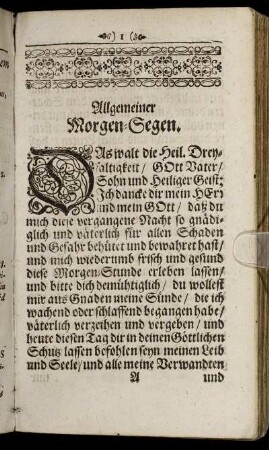 ) 1 (
Allgemeiner
Morgen-Segen.
DAs walt die Heil. Drey-
faltigkeit / GOtt Vater /
Sohn und Heiliger Geist;
Jch dancke dir mein HErr
und mein GOtt / daß du
mich diese vergangene Nacht so gnädi-
glich und väterlich für allen Schaden
und Gefahr behütet und bewahret hast /
und mich wiederum frisch und gesund
diese Morgen-Stunde erleben lassen /
und bitte dich demühtiglich / du wollest
mir aus Gnaden meine Sünde / die ich
wachend oder schlaffend begangen habe /
väterlich verzeihen und vergeben / und
heute diesen Tag dir in deinen Göttlichen
Schutz lassen befohlen seyn meinen Leib
und Seele / und alle meine Verwandten
A und